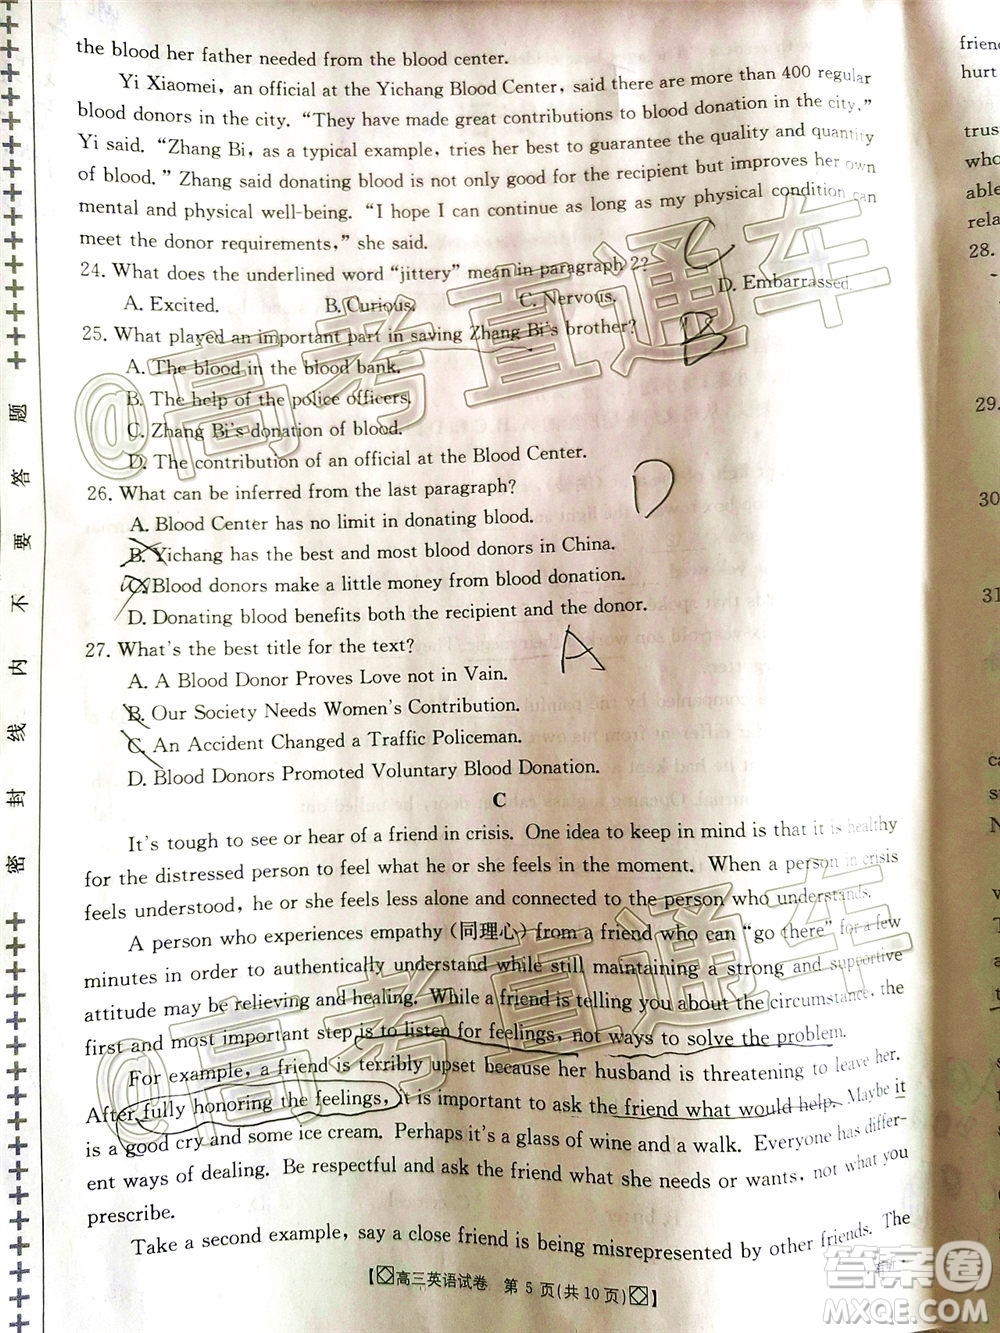 the blood her father needed from the blood center.
Yi Xiaomei, an official at the Yichang Blood Center, said there are more than 400 regular
blood donors in the city. “They have made great contributions to blood donation in the city,”
Yi said. “Zhang Bi, as a typical example, tries her best to guarantee the quality and quantity
of blood.” Zhang said donating blood is not only good for the recipient but improves her own
mental and physical well-being. “I hope I can continue as long as my physical condition can
meet the donor requirements,” she said.
24. What does the underlined word “jittery” mean in paragraph 2? C
A. Excited. B. Curious. C. Nervous. D. Embarrassed.
25. What played an important part in saving Zhang Bi's brother? B
A. The blood in the blood bank.
B. The help of the police officers.
C. Zhang Bi's donation of blood.
D. The contribution of an official at the Blood Center.
26. What can be inferred from the last paragraph? D
A. Blood Center has no limit in donating blood.
B. Yichang has the best and most blood donors in China.
C. Blood donors make a little money from blood donation.
D. Donating blood benefits both the recipient and the donor.
27. What's the best title for the text? A
A. A Blood Donor Proves Love not in Vain.
B. Our Society Needs Women's Contribution.
C. An Accident Changed a Traffic Policeman.
D. Blood Donors Promoted Voluntary Blood Donation.
C
It's tough to see or hear of a friend in crisis. One idea to keep in mind is that it is healthy
for the distressed person to feel what he or she feels in the moment. When a person in crisis
feels understood, he or she feels less alone and connected to the person who understands.
A person who experiences empathy (同理心) from a friend who can “go there” for a few
minutes in order to authentically understand while still maintaining a strong and supportive
attitude may be relieving and healing. While a friend is telling you about the circumstance, the
first and most important step is to listen for feelings, not ways to solve the problem.
For example, a friend is terribly upset because her husband is threatening to leave her.
After fully honoring the feelings, it is important to ask the friend what would help. Maybe it
is a good cry and some ice cream. Perhaps it's a glass of wine and a walk. Everyone has differ-
ent ways of dealing. Be respectful and ask the friend what she needs or wants, not what you
prescribe.
Take a second example, say a close friend is being misrepresented by other friends. The
【高三英语试卷 第 5 页(共 10 页)】
密 封 线 内 不 要 答 题
@高考直通车
@高考直通车
答案圈
MXQE.COM
friend
hurt
trus
who
able
rela
28.
29.
30
31